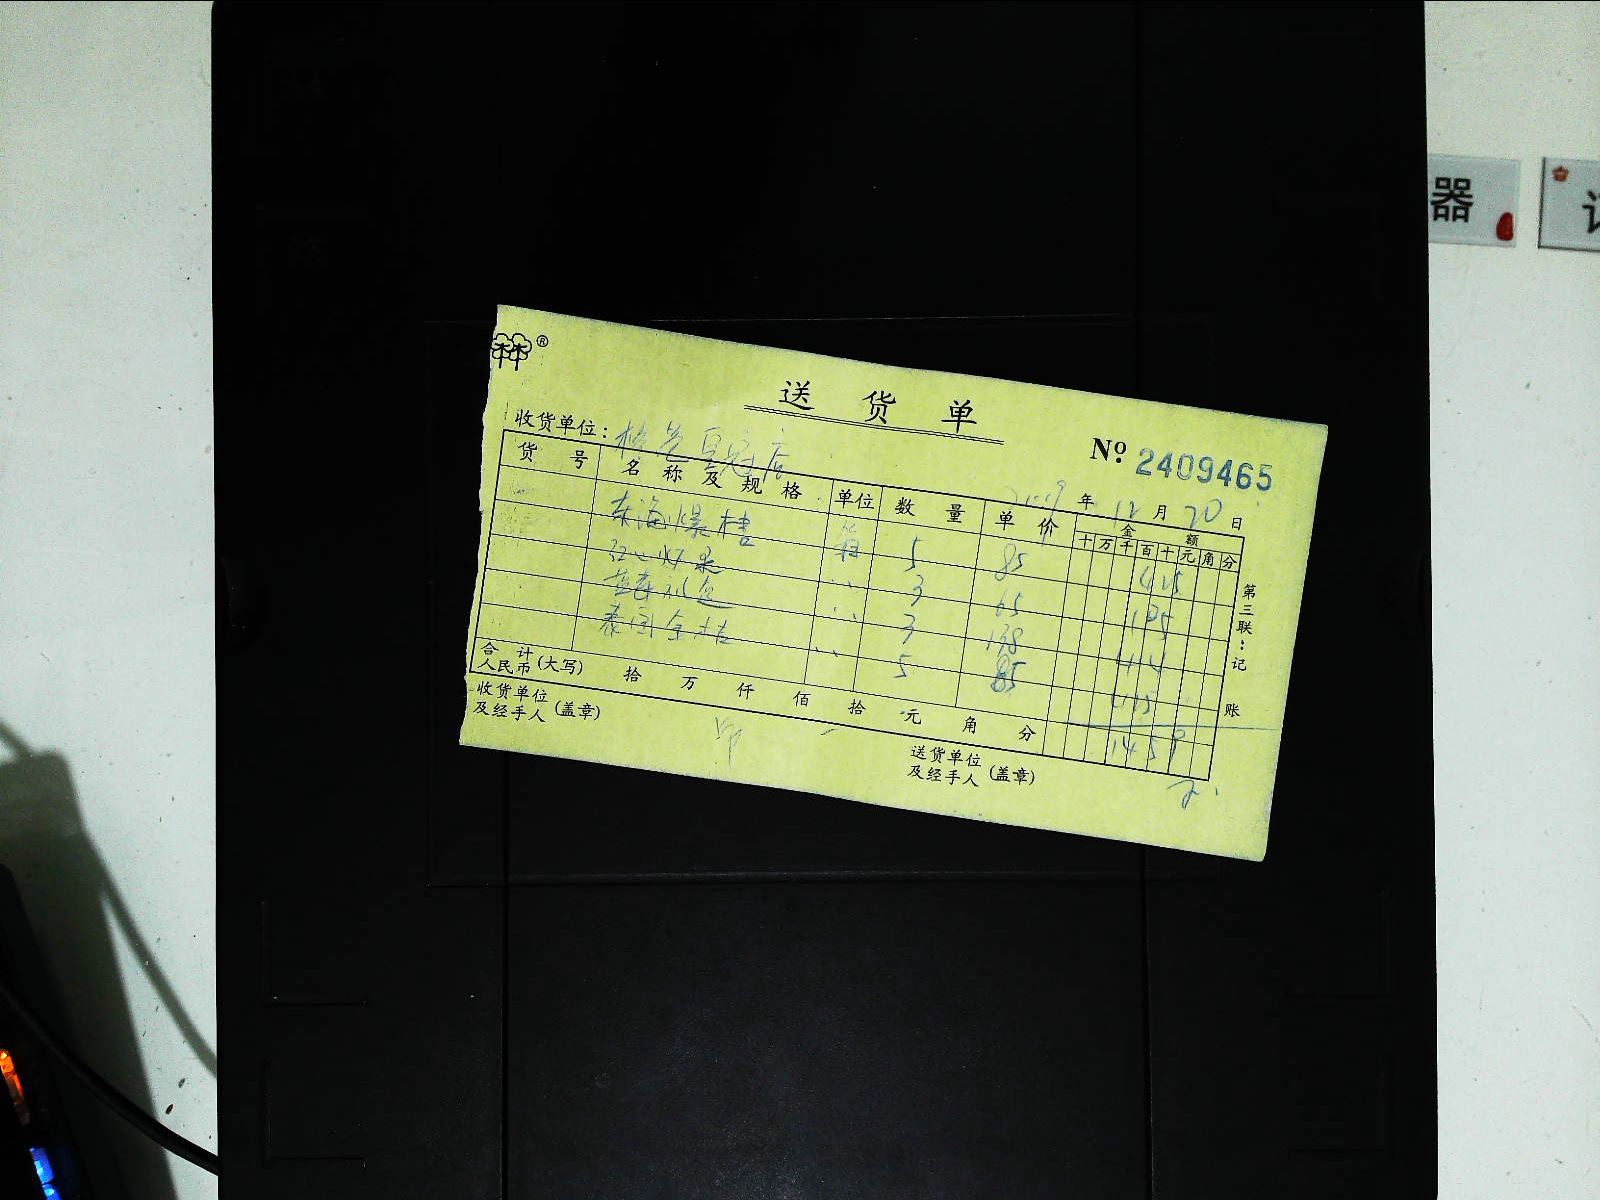 器
送货单
收货单位：皇冠店
№ 2409465
2019年12月20日
货号 名称及规格 单位 数量 单价 金额
十万千百十元角分
箱 5 85 425
红心火龙果 〃 3 65 195
〃 3 138 414
泰国金桔 〃 5 85 425
合计
人民币(大写) 拾 万 仟 佰 拾 元 角 分 1459
收货单位
及经手人(盖章)
送货单位
及经手人(盖章)
第三联：记账